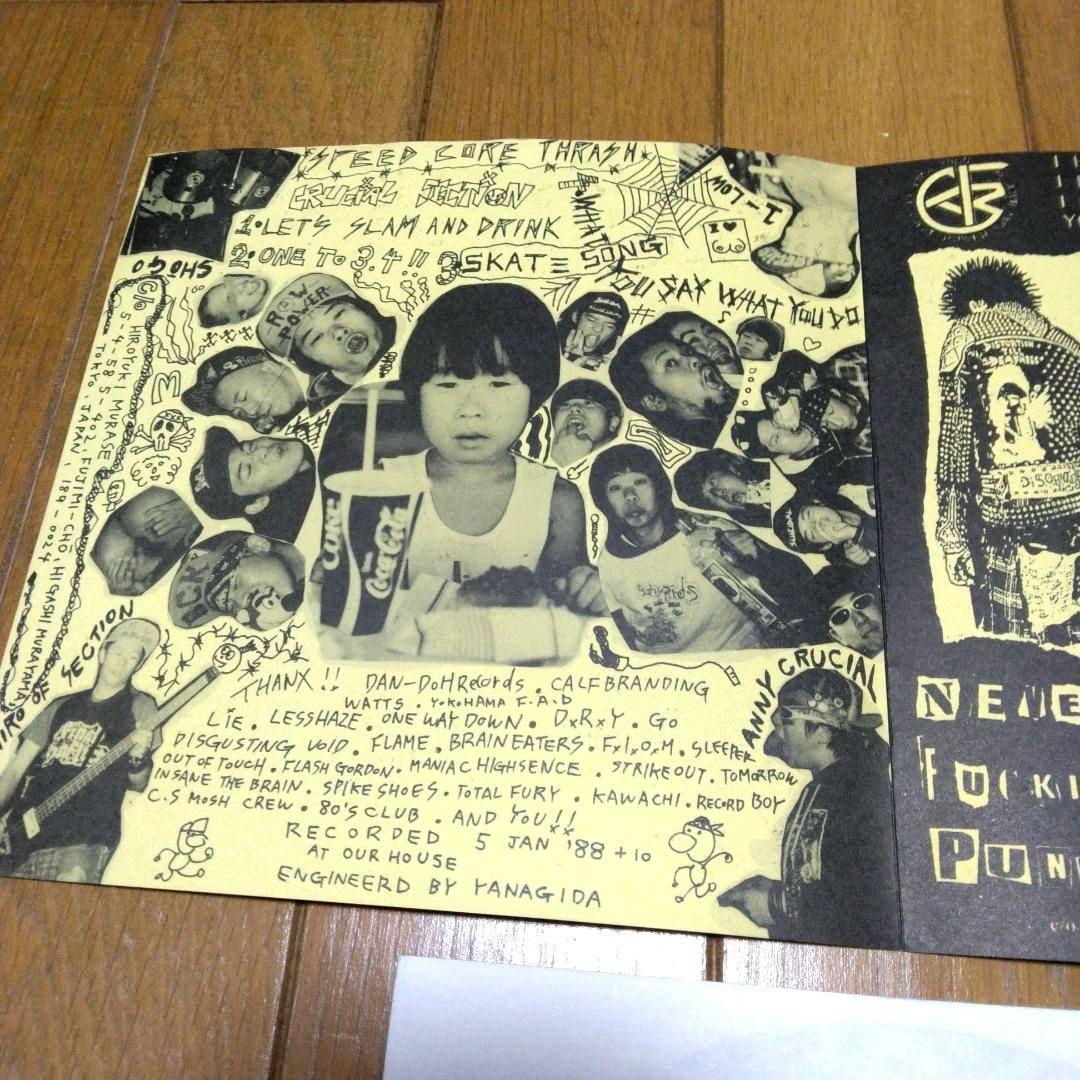 SPEED CORE THRASH
CRUCIAL SECTION
1. LET'S SLAM AND DRINK
2. ONE TO 3.4!!
3. SKATE SONG
4. WHAT
YOU SAY WHAT YOU DO
I-LOW
I
SHOGO
C/O HIROYUKI MURASE
5-4-58 5-402, FUJIMI-CHO, HIGASHIMURAYAMA,
TOKYO, JAPAN, 189-0024
RAW
POWER
COKE
Coca-Cola
HIRO OF SECTION
ANNY CRUCIAL
THANX!! DAN-DOH Records. CALFBRANDING
WATTS. YOKOHAMA F.A.D
LIE. LESSHAZE. ONE WAY DOWN. DxRxY. GO
DISGUSTING VOID. FLAME. BRAINEATERS. FxIxOxM. SLEEPER
OUT OF TOUCH. FLASH GORDON. MANIAC HIGHSENCE. STRIKEOUT. TOMORROW
INSANE THE BRAIN. SPIKE SHOES. TOTAL FURY. KAWACHI. RECORD BOY
C.S MOSH CREW. 80'S CLUB. AND YOU!!
RECORDED 5 JAN '88 + 10
AT OUR HOUSE
ENGINEERD BY YANAGIDA
NEVE
FUCKI
PUN
c/o